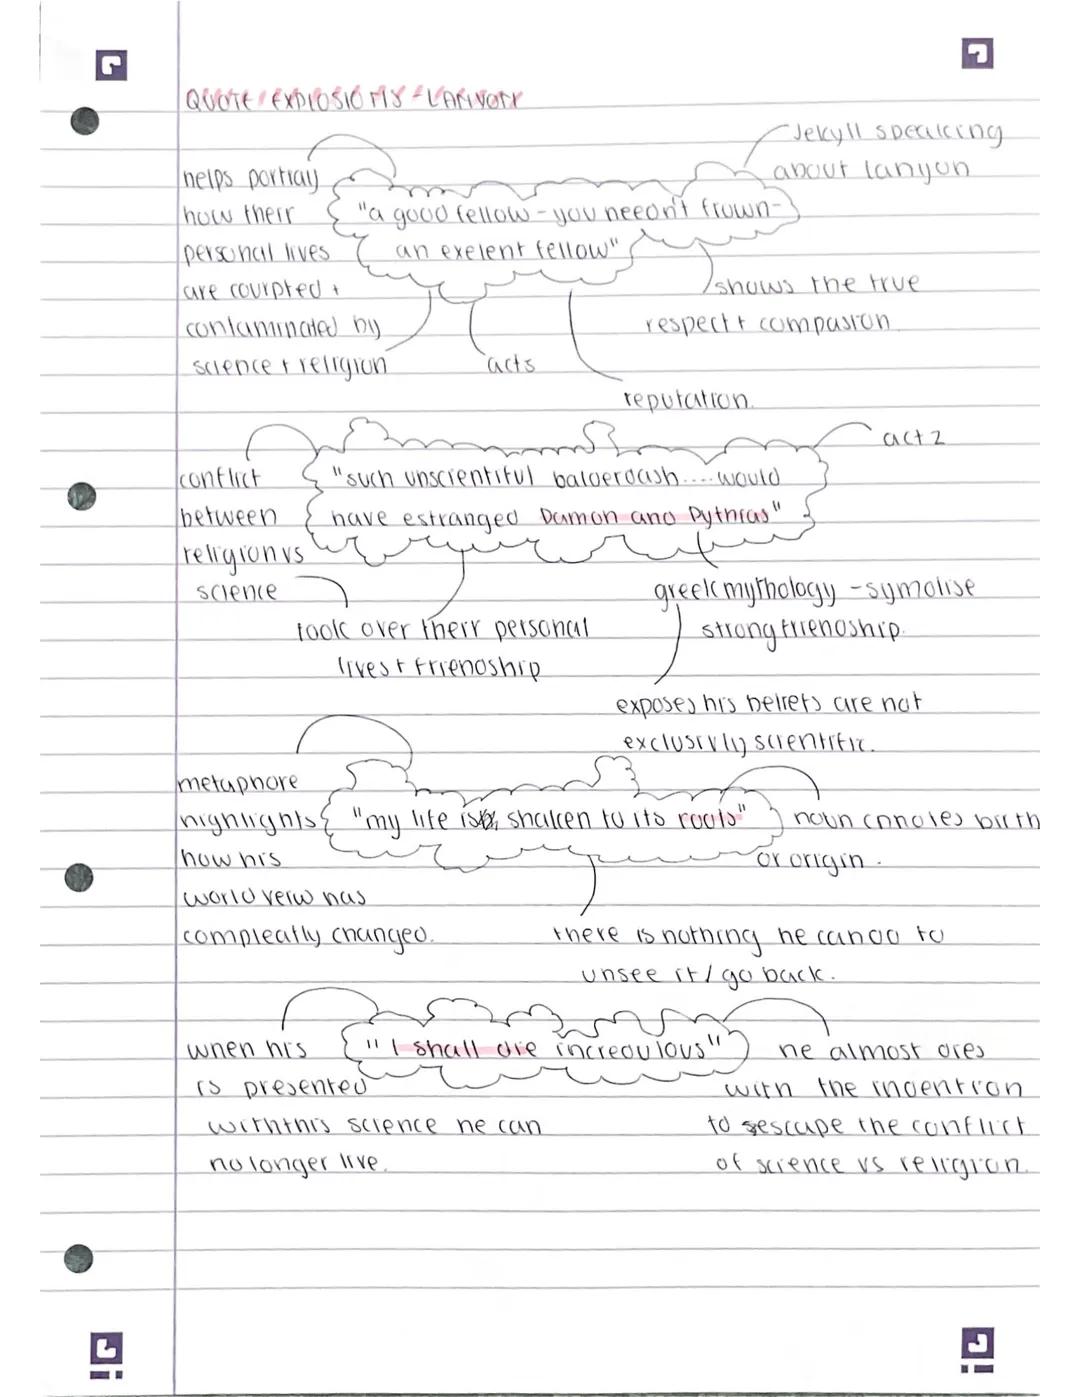 QUOTE EXPLOSIONS - LANYON
Jekyll speaking
about lanyon
helps portray
how their
personal lives
are courpted +
contaminated by
science + religion
"a good fellow - you needn't frown -
an exelent fellow"
shows the true
respect + compasion.
acts
reputation.
act 2
conflict
between
religion vs
science
"such unscientiful balderdash....would
have estranged Damon and Pythias"
took over their personal
lives + friendship
greek mythology - symolise
strong friendship.
exposes his beliefs are not
exclusivly scientific.
metaphore
highlights
how his
world veiw has
compleatly changed.
"my life is shaken to its roots"
noun cnnotes birth
or origin.
there is nothing he can do to
unsee it / go back.
"I shall die incredulous"
when his
is presented
with this science he can
no longer live.
he almost dies
with the indention
to escape the conflict
of science vs religion.